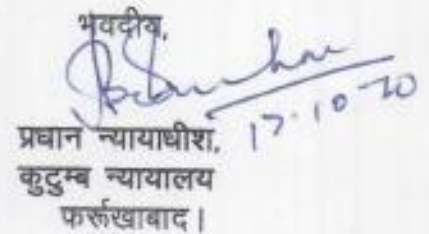 भवदीय,
17-10-20
प्रधान न्यायाधीश,
कुटुम्ब न्यायालय
फर्रूखाबाद।